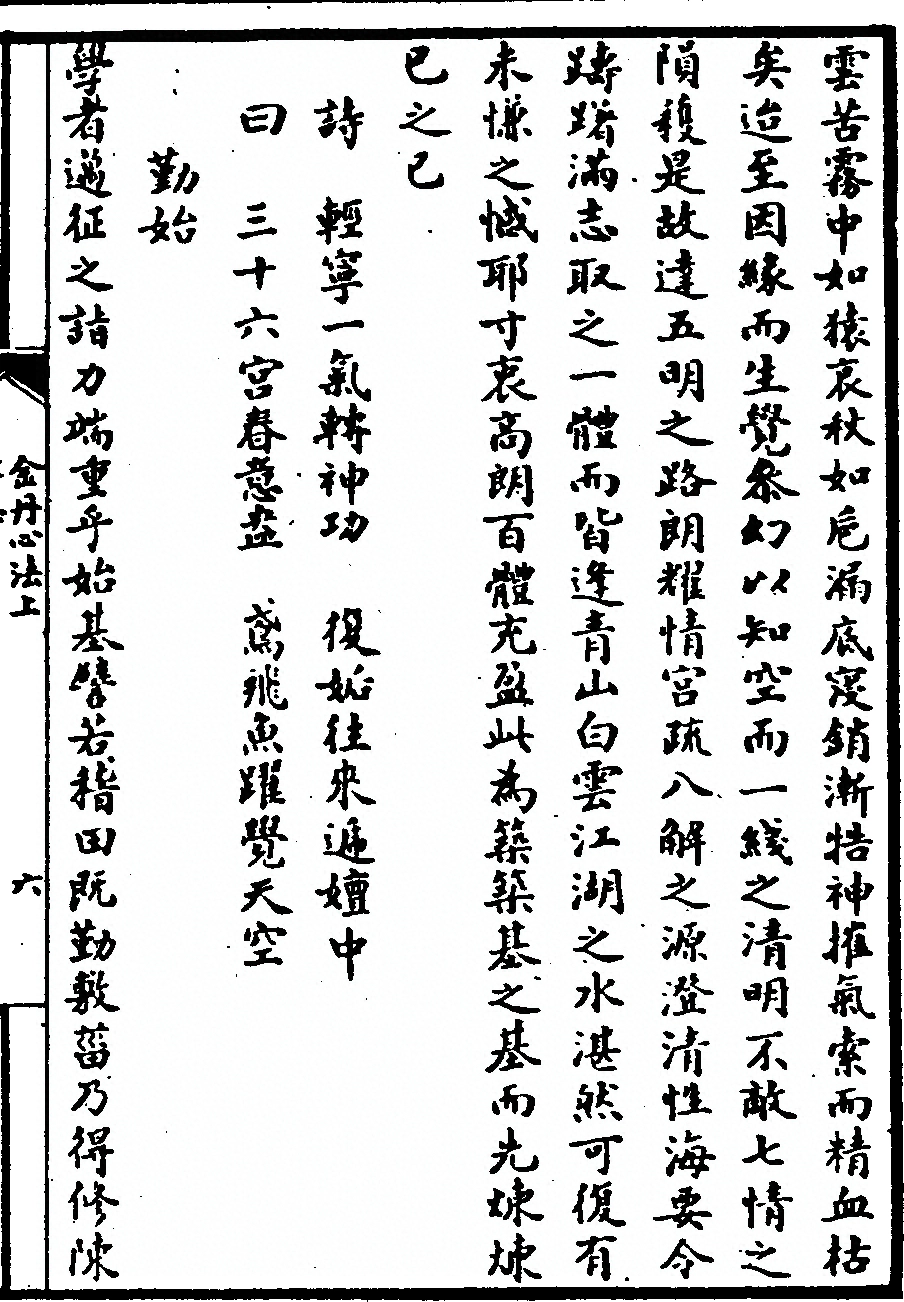 雲苦霧中如猿哀秋如巵漏底寖銷漸牿神摧氣索而精血枯
矣迨至因緣而生覺叅幻以知空而一綫之清明不敵七情之
隕穫是故達五明之路朗耀情宮疏八解之源澄清性海要令
躊躇滿志取之一體而皆逢青山白雲江湖之水湛然可復有
未慊之憾耶寸衷高朗百體充盈此為築築基之基而先煉煉
已之已
詩　輕寧一氣轉神功　復姤往來遞嬗中
曰　三十六宮春意盎　鳶飛魚躍覺天空
勤始
學者邁征之詣力端重乎始基譬若稽田既勤敷菑乃得修陳
金丹心法上
六